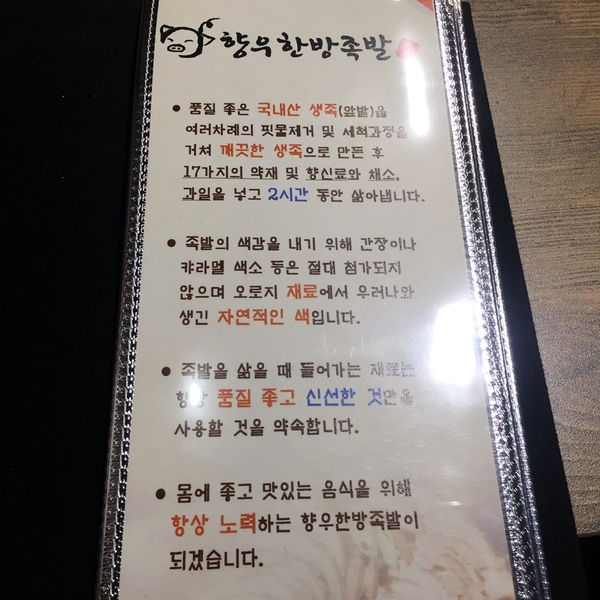 향우한방족발
● 품질 좋은 국내산 생족(앞발)을
여러차례의 핏물제거 및 세척과정을
거쳐 깨끗한 생족으로 만든 후
17가지의 약재 및 향신료와 채소,
과일을 넣고 2시간 동안 삶아냅니다.
● 족발의 색감을 내기 위해 간장이나
캬라멜 색소 등은 절대 첨가되지
않으며 오로지 재료에서 우러나와
생긴 자연적인 색입니다.
● 족발을 삶을 때 들어가는 재료는
항상 품질 좋고 신선한 것만을
사용할 것을 약속합니다.
● 몸에 좋고 맛있는 음식을 위해
항상 노력하는 향우한방족발이
되겠습니다.